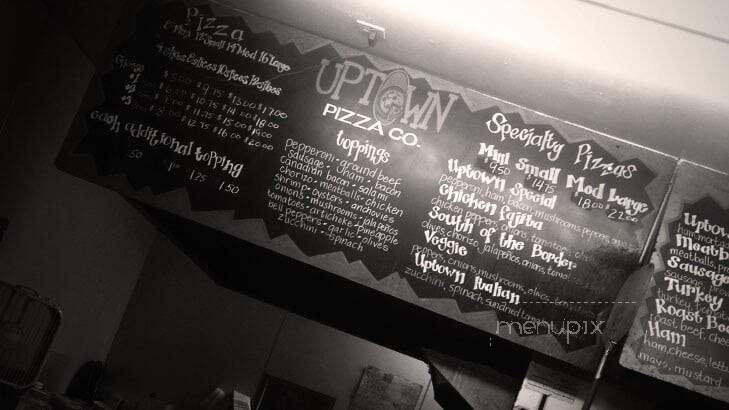 Pizza
Small 14 Med 16 Large
4 slices 8 slices 10 slices 12 slices
Cheese
$5.00 $9.75 $13.00 $17.00
10.75 14.00 18.00
11.75 15.00 19.00
12.75 16.00 20.00
each additional topping
.50 1.00 1.25 1.50
UPTOWN
PIZZA CO.
toppings
pepperoni - ground beef
sausage - ham - bacon
canadian bacon - salami
chorizo - meatballs - chicken
shrimp - oysters - anchovies
onions - mushrooms - jalapeños
tomatoes - artichoke - pineapple
peppers - garlic - olives
zucchini - spinach
Specialty Pizzas
Mini Small Med Large
$9.50 14.75 18.00 22.00
Uptown Special
pepperoni, ham, bacon, mushrooms, peppers, onions
Chicken fajita
chicken, peppers, onions, tomatoes
South of the Border
chorizo, jalapeños, onions
Veggie
peppers, onions, mushrooms, olives
Uptown Italian
zucchini, spinach, sundried
Uptown
Meatball
meatballs
Sausage
sausage
Turkey
turkey
Roast Beef
roast beef
Ham
ham, cheese
mayo, mustard
menupix